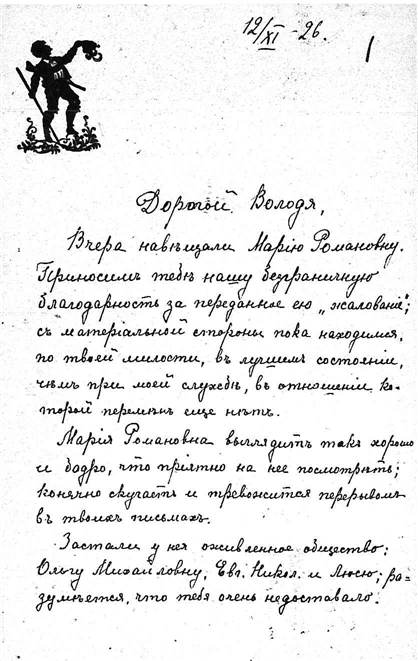 12/XI - 26.
1
Дорогой Володя,
Вчера навѣщали Марію Романовну.
Приносимъ тебѣ нашу безграничную
благодарность за переданное ею „жалованіе";
съ матеріальной стороны пока находимся,
по твоей милости, въ лучшемъ состояніи,
чѣмъ при моей службѣ, въ отношеніи ко-
торой перемѣнъ еще нѣтъ.
Марія Романовна выглядитъ такъ хорошо
и бодро, что пріятно на нее посмотрѣть;
конечно скучаетъ и тревожится перерывомъ
въ твоихъ письмахъ.
Застали у нея оживленное общество:
Ольгу Михайловну, Евг. Никол. и Люсю; ра-
зумѣется, что тебя очень недоставало.